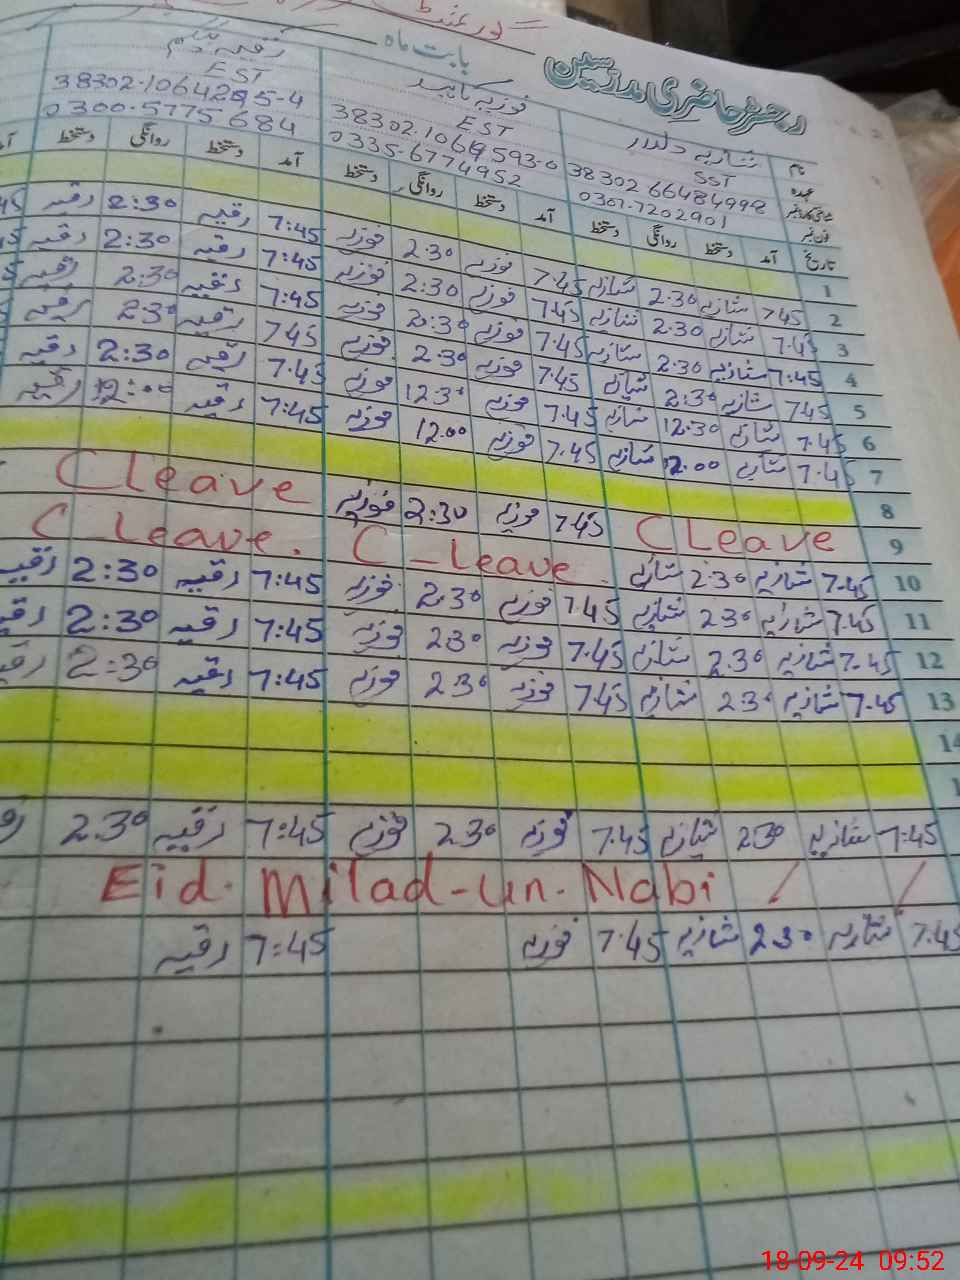 رجسٹر حاضری مدرسین بابت ماہ
نام شازیہ دلدار فوزیہ رقیہ
عہدہ SST EST EST
شناختی کارڈ نمبر 38302 66484998 38302.1064593-0 38302.1064295-4
فون نمبر 0301-7202901 0335-6774952 0300-5775684
تاریخ آمد دستخط روانگی دستخط آمد دستخط روانگی دستخط آمد دستخط روانگی دستخط
1
2 745 شازیہ 2.30 شازیہ 7.45 فوزیہ 2.30 فوزیہ 7:45 رقیہ 2:30 رقیہ
3 7.45 شازیہ 2.30 شازیہ 7.45 فوزیہ 2:30 فوزیہ 7:45 رقیہ 2:30 رقیہ
4 7:45 شازیہ 2.30 شازیہ 7.45 فوزیہ 2:30 فوزیہ 7:45 رقیہ 2:30 رقیہ
5 745 شازیہ 2:30 شازیہ 7.45 فوزیہ 2.30 فوزیہ 745 رقیہ 2:30 رقیہ
6 7.45 شازیہ 12.30 شازیہ 7.45 فوزیہ 12.30 فوزیہ 7.45 رقیہ 2:30 رقیہ
7 7.45 شازیہ 12.00 شازیہ 7.45 فوزیہ 12.00 فوزیہ 7:45 رقیہ 12:00 رقیہ
8
9 C Leave 7.45 فوزیہ 2:30 فوزیہ C leave
10 7.45 شازیہ 2.30 شازیہ C-leave. C-Leave.
11 7.45 شازیہ 2.30 شازیہ 7.45 فوزیہ 2.30 فوزیہ 7:45 رقیہ 2:30 رقیہ
12 7.45 شازیہ 2.30 شازیہ 7.45 فوزیہ 2.30 فوزیہ 7:45 رقیہ 2:30 رقیہ
13 7.45 شازیہ 2.30 شازیہ 7.45 فوزیہ 2.30 فوزیہ 7:45 رقیہ 2:30 رقیہ
14
7:45 شازیہ 2.30 شازیہ 7.45 فوزیہ 2.30 فوزیہ 7:45 رقیہ 2.30
Eid. Milad-un-Nabi / /
7.45 شازیہ 2.30 شازیہ 7.45 فوزیہ 7:45 رقیہ
18-09-24 09:52